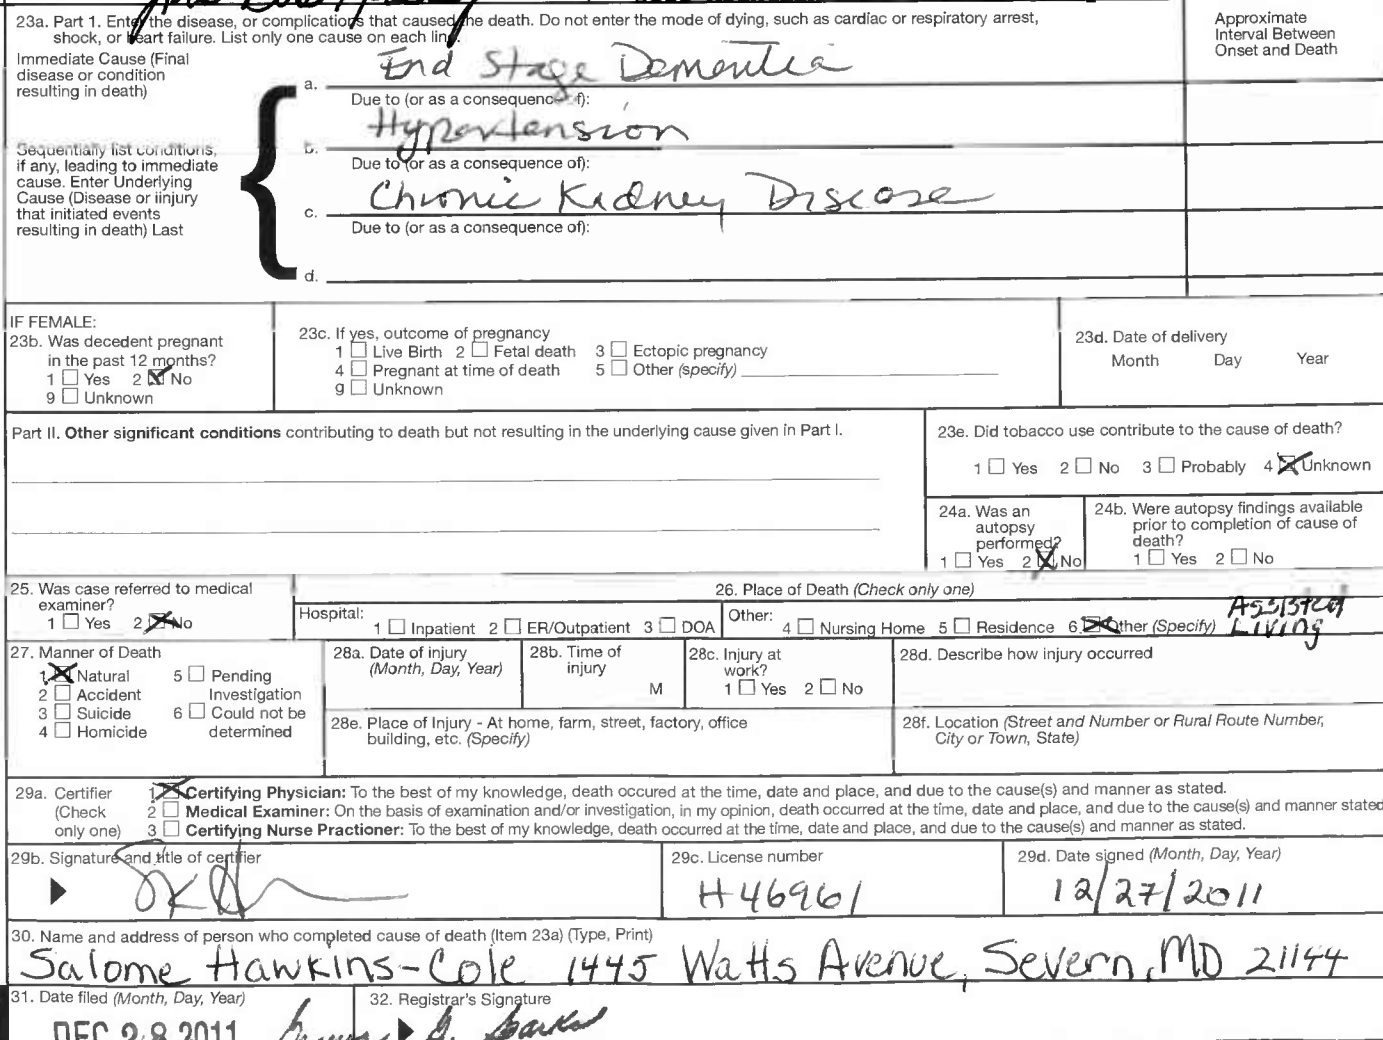 23a. Part 1. Enter the disease, or complications that caused the death. Do not enter the mode of dying, such as cardiac or respiratory arrest,
shock, or heart failure. List only one cause on each line.
Approximate
Interval Between
Onset and Death
Immediate Cause (Final
disease or condition
resulting in death)
a. End Stage Dementia
Due to (or as a consequence of):
b. Hypertension
Due to (or as a consequence of):
c. Chronic Kidney Disease
Due to (or as a consequence of):
d.
Sequentially list conditions,
if any, leading to immediate
cause. Enter Underlying
Cause (Disease or iinjury
that initiated events
resulting in death) Last
IF FEMALE:
23b. Was decedent pregnant
in the past 12 months?
1 ☐ Yes 2 ☒ No
9 ☐ Unknown
23c. If yes, outcome of pregnancy
1 ☐ Live Birth 2 ☐ Fetal death 3 ☐ Ectopic pregnancy
4 ☐ Pregnant at time of death 5 ☐ Other (specify)
9 ☐ Unknown
23d. Date of delivery
Month Day Year
Part II. Other significant conditions contributing to death but not resulting in the underlying cause given in Part I.
23e. Did tobacco use contribute to the cause of death?
1 ☐ Yes 2 ☐ No 3 ☐ Probably 4 ☒ Unknown
24a. Was an
autopsy
performed?
1 ☐ Yes 2 ☒ No
24b. Were autopsy findings available
prior to completion of cause of
death?
1 ☐ Yes 2 ☐ No
25. Was case referred to medical
examiner?
1 ☐ Yes 2 ☒ No
26. Place of Death (Check only one)
Hospital: 1 ☐ Inpatient 2 ☐ ER/Outpatient 3 ☐ DOA
Other: 4 ☐ Nursing Home 5 ☐ Residence 6 ☒ Other (Specify) Assisted
Living
27. Manner of Death
1 ☒ Natural 5 ☐ Pending
2 ☐ Accident Investigation
3 ☐ Suicide 6 ☐ Could not be
4 ☐ Homicide determined
28a. Date of injury
(Month, Day, Year)
28b. Time of
injury
M
28c. Injury at
work?
1 ☐ Yes 2 ☐ No
28d. Describe how injury occurred
28e. Place of Injury - At home, farm, street, factory, office
building, etc. (Specify)
28f. Location (Street and Number or Rural Route Number,
City or Town, State)
29a. Certifier
(Check
only one)
1 ☒ Certifying Physician: To the best of my knowledge, death occured at the time, date and place, and due to the cause(s) and manner as stated.
2 ☐ Medical Examiner: On the basis of examination and/or investigation, in my opinion, death occurred at the time, date and place, and due to the cause(s) and manner stated
3 ☐ Certifying Nurse Practioner: To the best of my knowledge, death occurred at the time, date and place, and due to the cause(s) and manner as stated.
29b. Signature and title of certifier
29c. License number
H46961
29d. Date signed (Month, Day, Year)
12/27/2011
30. Name and address of person who completed cause of death (Item 23a) (Type, Print)
Salome Hawkins-Cole 1445 Watts Avenue, Severn, MD 21144
31. Date filed (Month, Day, Year)
DEC 28 2011
32. Registrar's Signature